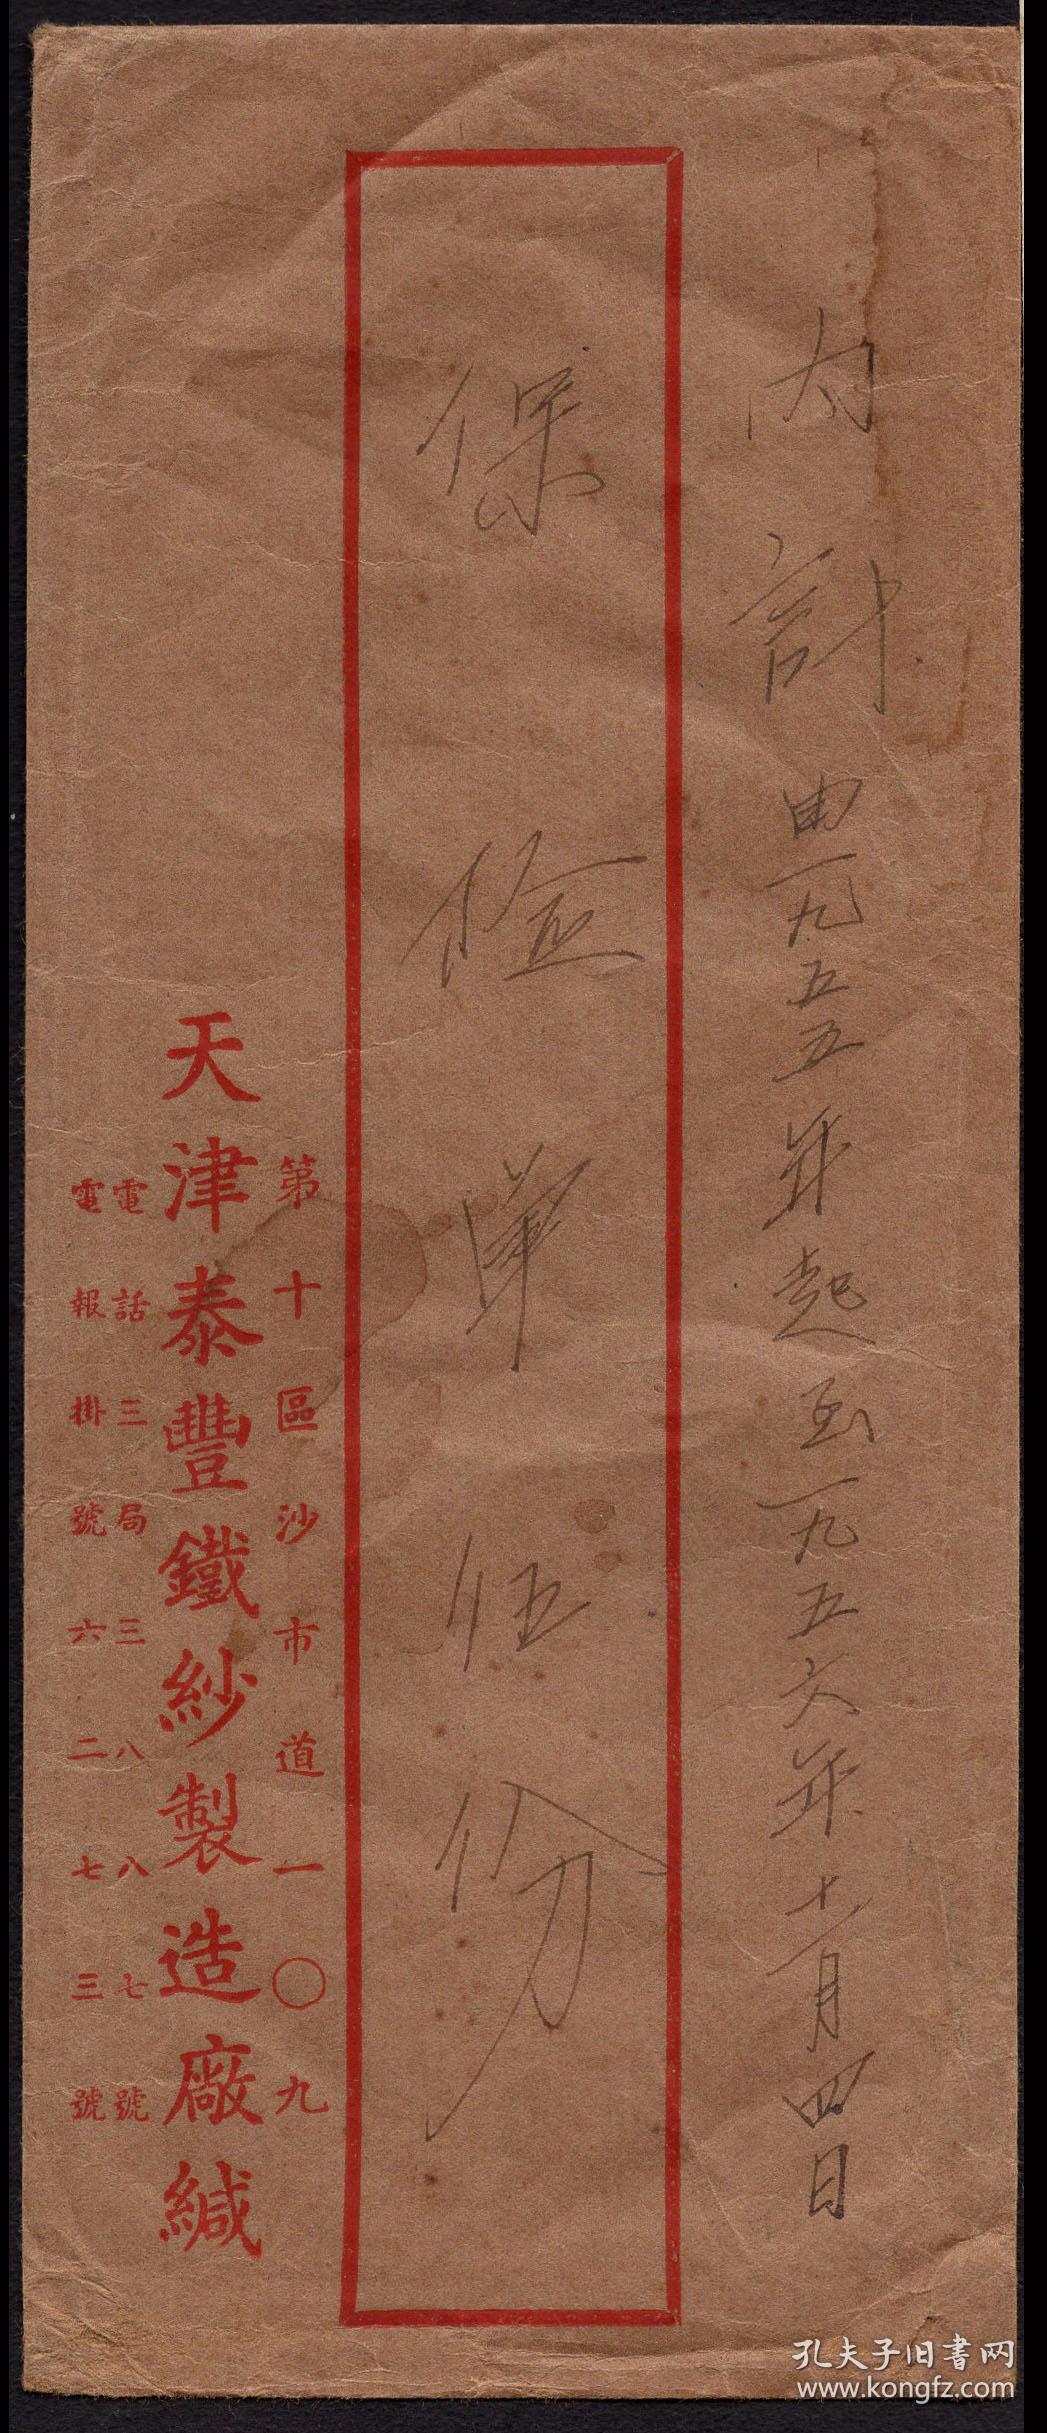 內計由一九五五年起至一九五六年十一月四日
保險單伍份
第十區沙市道一〇九
天津泰豐鐵紗製造廠緘
電話三局三八八七號
電報掛號六二七三號
孔夫子旧書网
www.kongfz.com